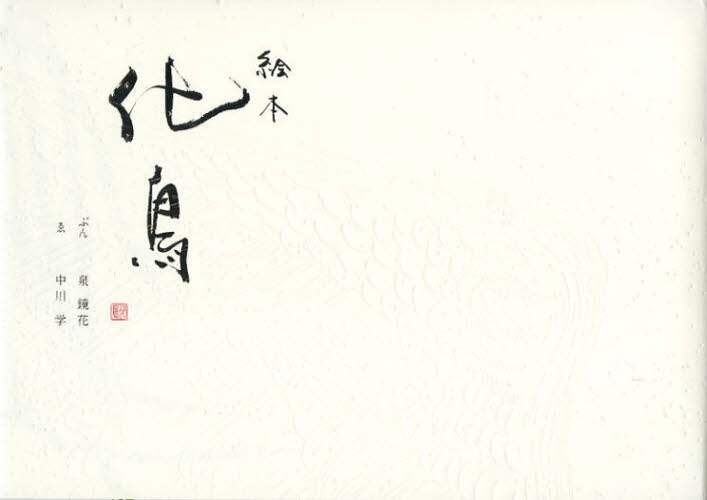 絵本
化鳥
ぶん 泉 鏡花
ゑ 中川 学